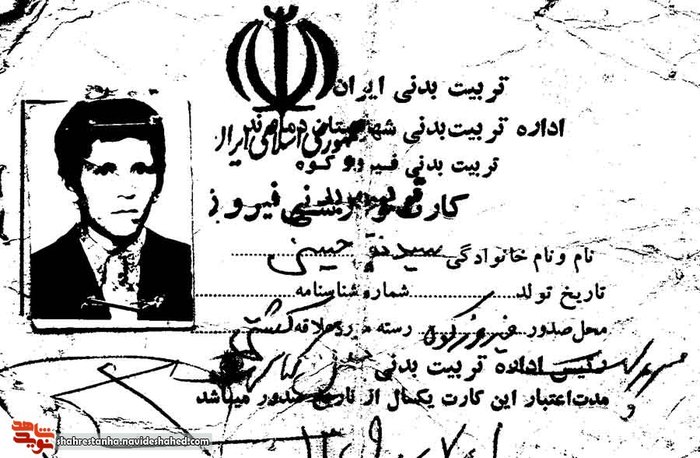 تربیت بدنی ایران
اداره تربیت‌بدنی شهرستان
جمهوری اسلامی ایران
تربیت بدنی فیروزکوه
کارت
فیروز
نام و نام خانوادگی سید تقی حسینی
تاریخ تولد شماره شناسنامه
محل صدور فیروزکوه رشته مورد علاقه کشتی
رئیس اداره تربیت بدنی
مدت اعتبار این کارت یکسال از تاریخ صدور میباشد
نوید شاهد
shahrestanha.navideshahed.com